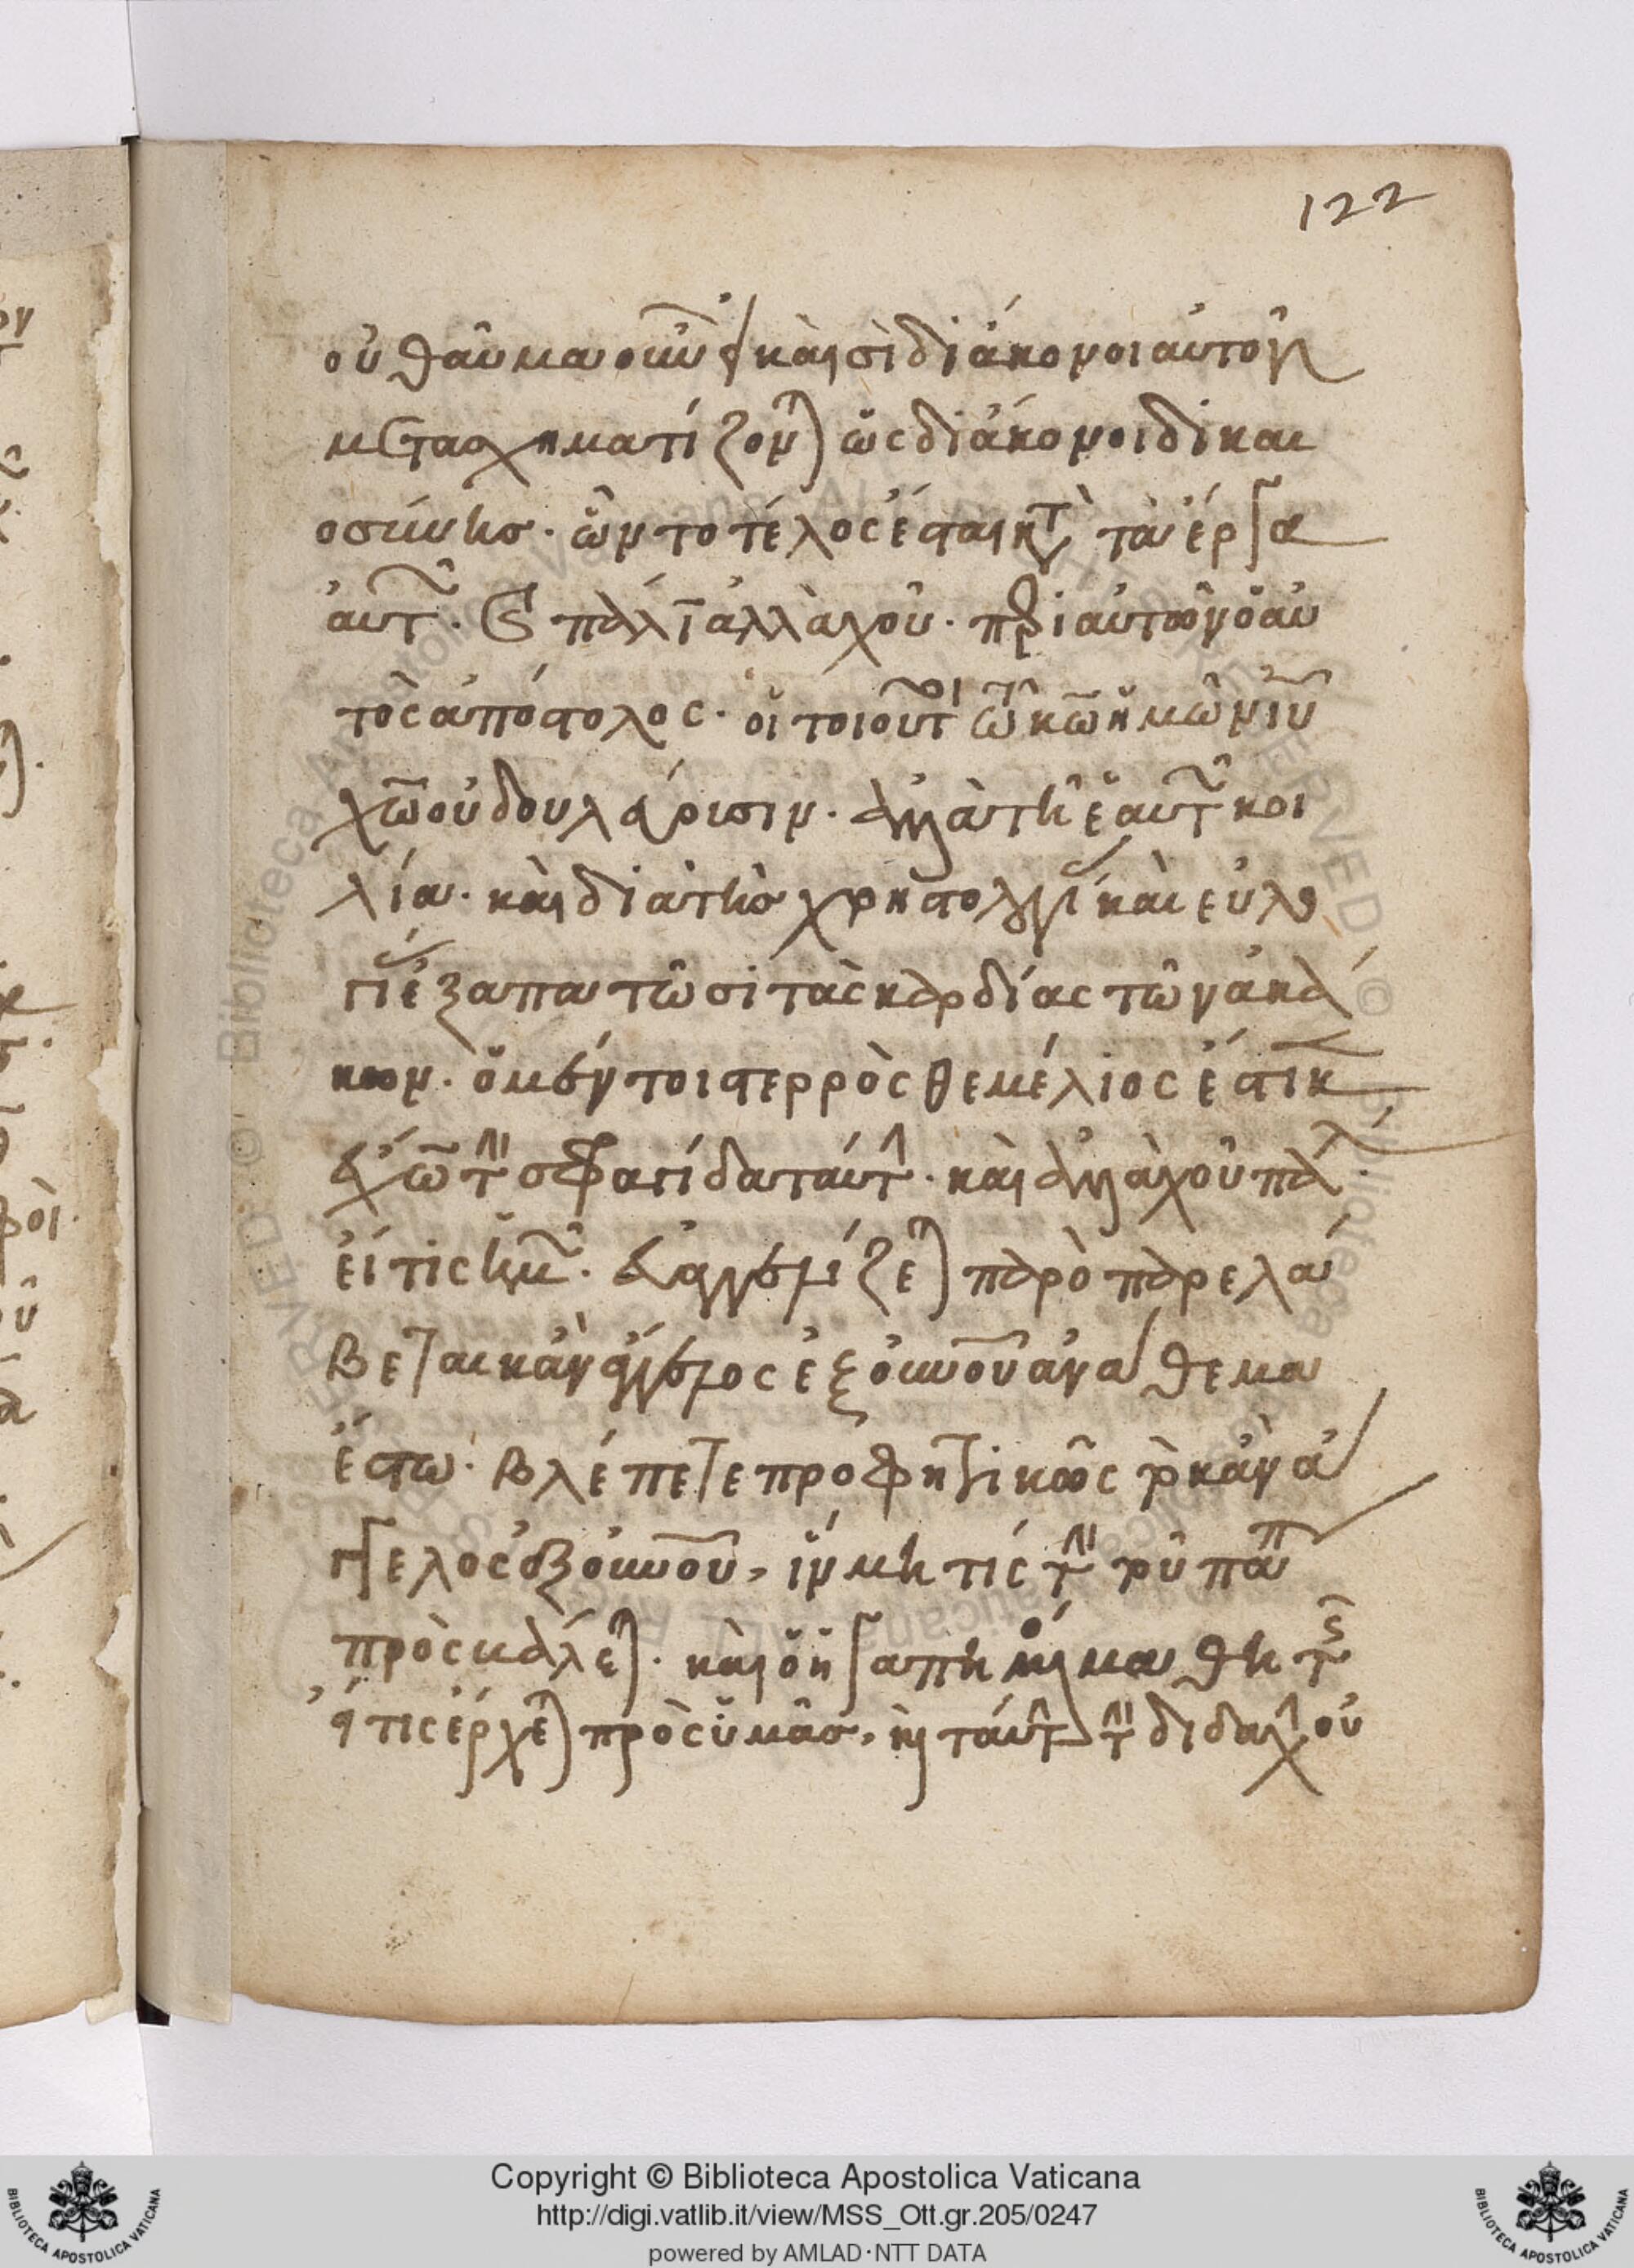 122
οὐ θαῦμα οὖν εἰ καὶ οἱ διάκονοι αὐτοῦ
μετασχηματίζονται ὡς διάκονοι δικαι
οσύνης· ὧν το τέλος ἔσται κατὰ τὰ ἔργα
αὐτῶν. καὶ πάλιν ἀλλαχοῦ· περὶ αὐτῶν ὁ αὐ
τὸς ἀπόστολος· οἱ τοιοῦτοι τῶ κω ἡμῶν ιυ
χω οὐ δουλεύουσιν· ἀλλὰ τῆ ἑαυτῶν κοι
λία· καὶ διὰ τῆς χρηστολογίας καὶ εὐλο
γίας ἐξαπατῶσι τὰς καρδίας τῶν ἀκά
κων· ὁ μέντοι στερρὸς θεμέλιος ἕστηκεν
ἔχων τὴν σφραγίδα ταύτην· καὶ ἀλλαχοῦ πάλιν·
εἴ τις ὑμᾶς εὐαγγελίζεται παρ' ὃ παρελά
βετε καὶ ἄγγελος ἐξ οὐνοῦ ἀνάθεμα
ἔστω· βλέπετε προφητικῶς
γελος ἐξ οὐνοῦ, ἵνα μή τις
πρὸς καὶ ὁ ἀγαπημένος μαθητὴς
εἴ τις ἔρχεται πρὸς ὑμᾶς, καὶ ταύτην τὴν διδαχὴν οὐ
Copyright © Biblioteca Apostolica Vaticana
http://digi.vatlib.it/view/MSS_Ott.gr.205/0247
powered by AMLAD·NTT DATA
BIBLIOTECA APOSTOLICA VATICANA
BIBLIOTECA APOSTOLICA VATICANA